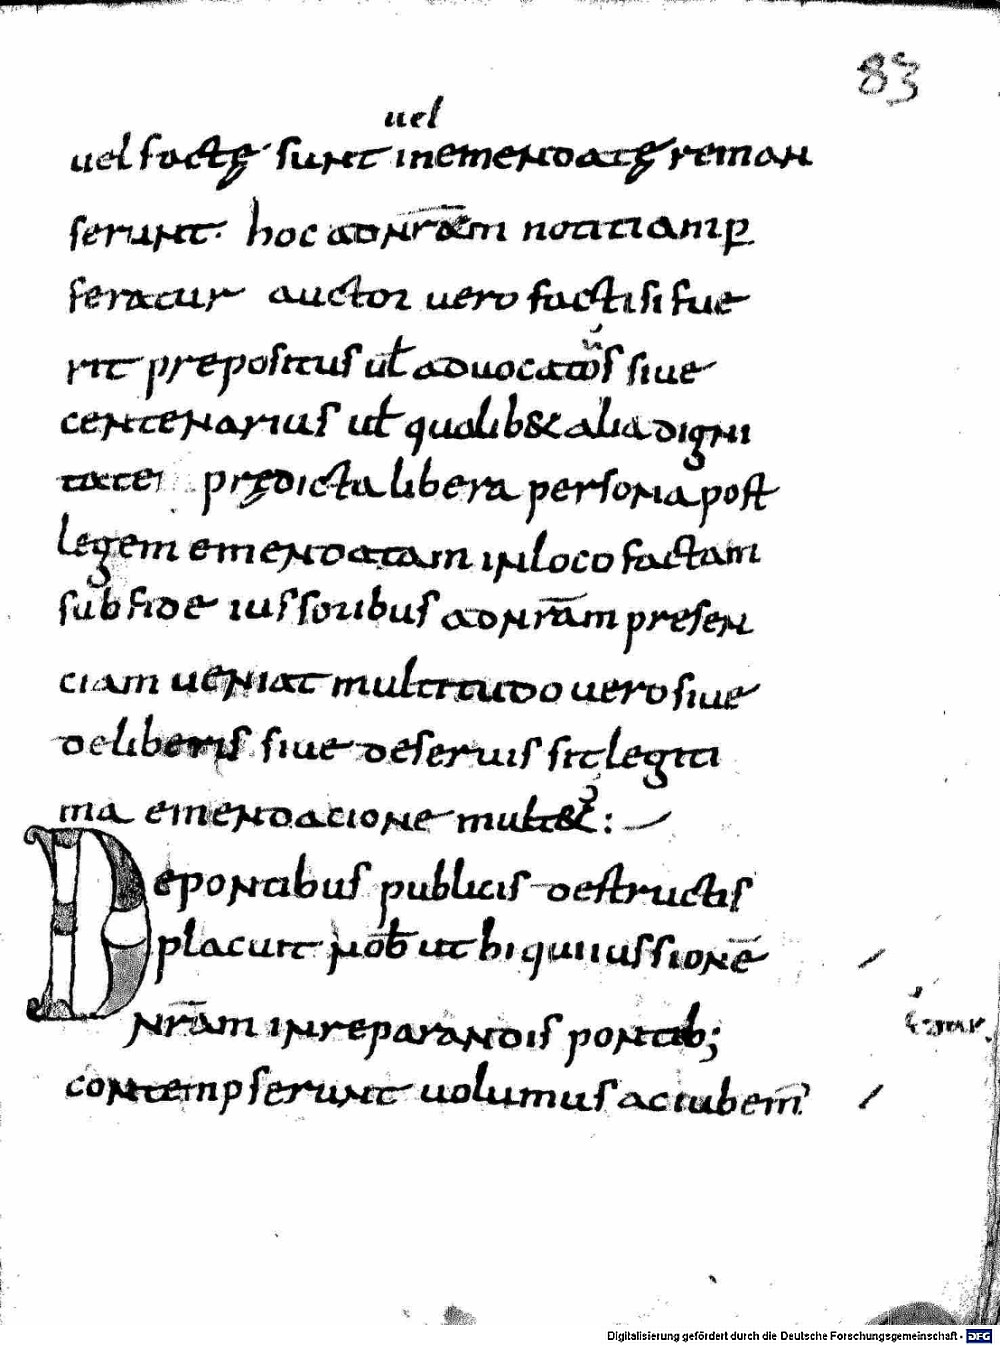 83
uel
uel factę sunt inemendatę reman
serunt. hoc ad nr̄am notitiam ꝑ
feratur auctor uero facti si fue
rit prepositus ul̄ aduocatos siue
centenarius ul̄ qualib& alia digni
tate p̄ędicta libera persona post
legem emendatam in loco factam
sub fide iussoribus ad nr̄am presen
ciam ueniat multitudo uero siue
de liberis siue de seruis sit legiti
ma emendacione mult&:
De pontibus publicis destructis
placuit nob̄ ut hi qui iussionē
nr̄am in reparandis pontib;
contempserunt uolumus ac iubem̄
Digitalisierung gefördert durch die Deutsche Forschungsgemeinschaft - DFG